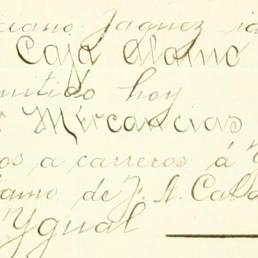 ciano Jaquez id
Caja Alamo
mitido hoy
Mercancias
os a carreros á
amo de F. A. Cald
Ygual